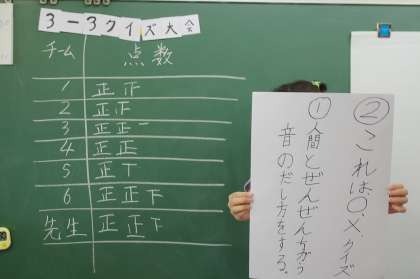 3-3クイズ大会
チーム 点数
1 正正
2 正正
3 正正一
4 正正
5 正丅
6 正正下
先生 正正下
② これは〇、×クイズ
① 人間とぜんぜんちがう
音のだし方をする。